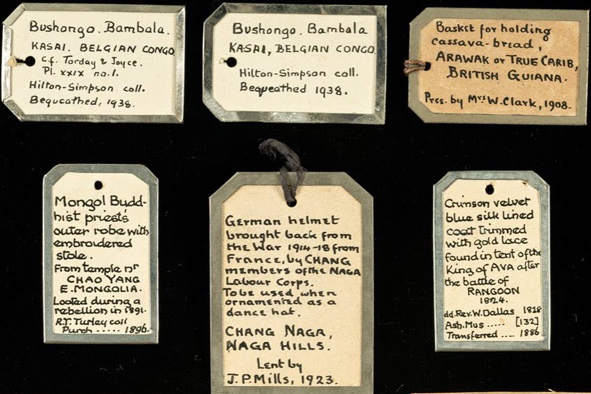 Bushongo. Bambala.
KASAI. BELGIAN CONGO
Cf. Torday & Joyce.
Pl. XXIX no.1.
Hilton-Simpson coll.
Bequeathed, 1938.
Bushongo. Bambala
KASAI, BELGIAN CONGO
Hilton-Simpson coll.
Bequeathed 1938.
Basket for holding
cassava-bread,
ARAWAK or TRUE CARIB,
BRITISH GUIANA.
Pres. by Mrs W. Clark, 1908.
Mongol Budd-
hist priest's
outer robe with
embroidered
stole.
From temple nr
CHAO YANG
E. MONGOLIA.
Looted during a
rebellion in 1891.
R.T. Turley coll
Purch ..... 1896.
German helmet
brought back from
the War 1914-18 from
France, by CHANG
members of the NAGA
Labour Corps.
To be used when
ornamented as a
dance hat.
CHANG NAGA,
NAGA HILLS.
Lent by
J.P. Mills, 1923.
Crimson velvet
blue silk lined
coat trimmed
with gold lace
found in tent of the
King of AVA after
the battle of
RANGOON
1824.
dd. Rev. W. Dallas 1828
Ash. Mus ..... [132]
Transferred .... 1886.